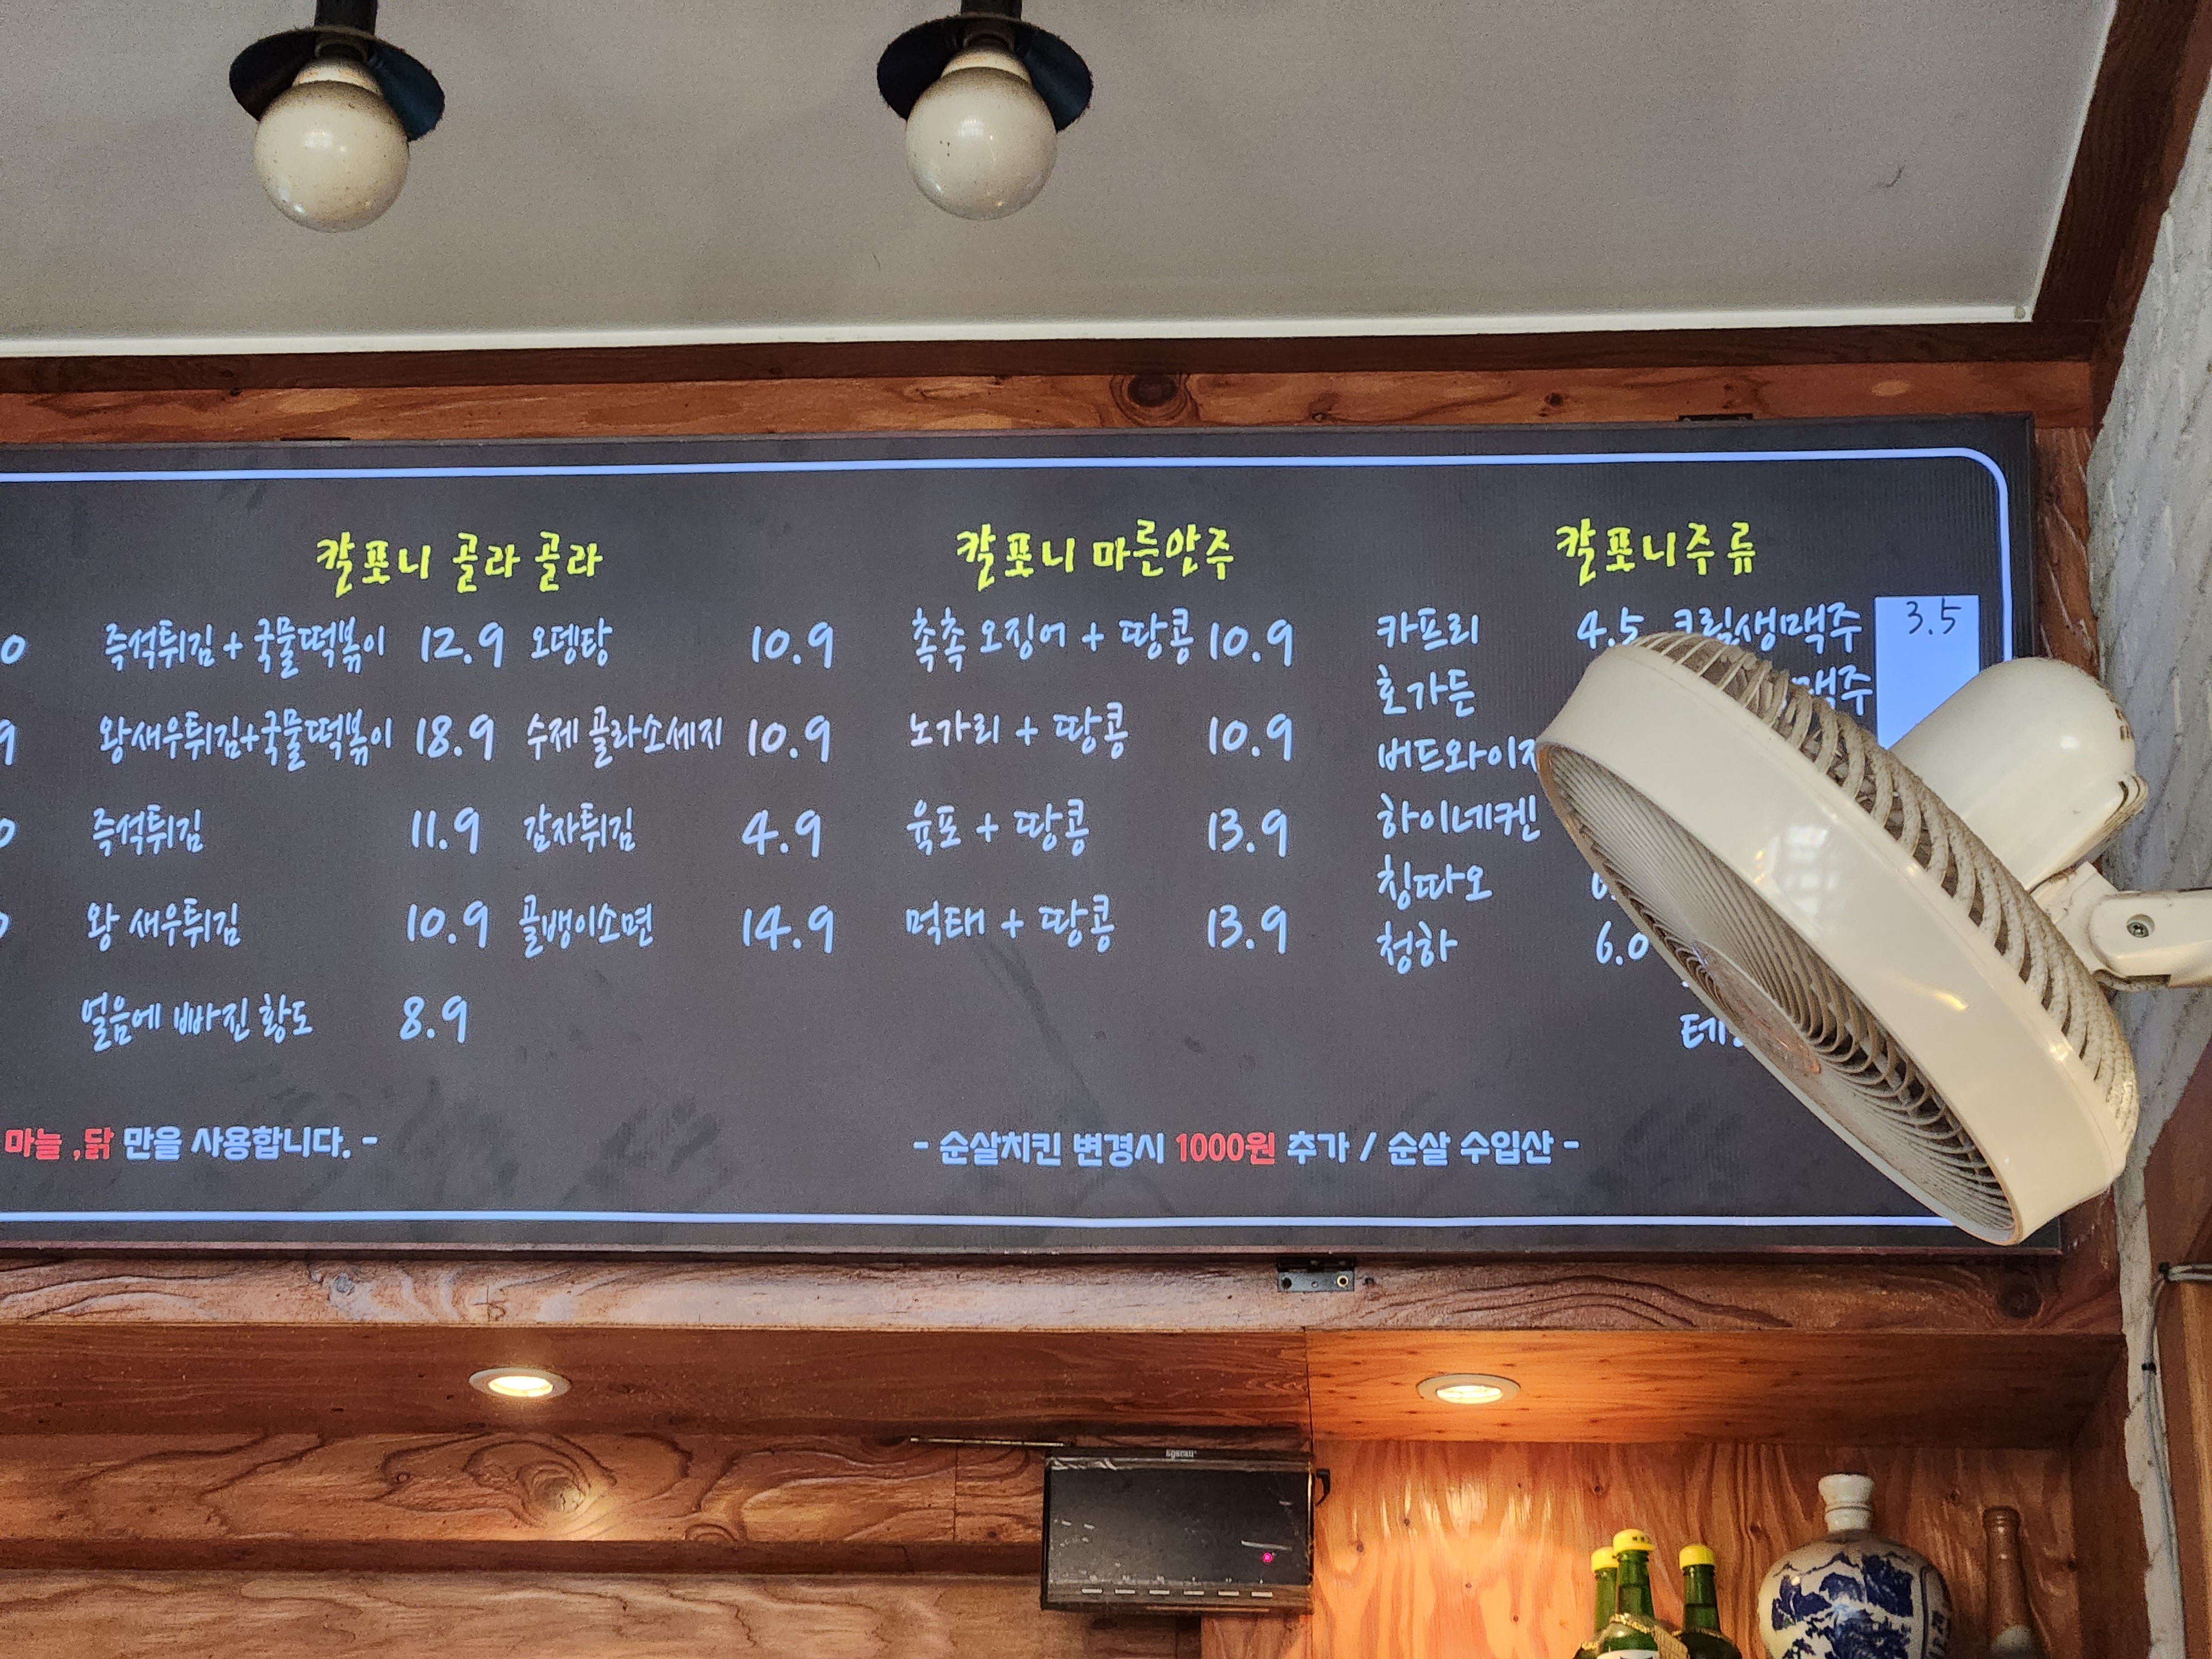 칼포니 골라 골라
즉석튀김 + 국물떡볶이 12.9 오뎅탕 10.9
왕새우튀김+국물떡볶이 18.9 수제 골라소세지 10.9
즉석튀김 11.9 감자튀김 4.9
왕 새우튀김 10.9 골뱅이소면 14.9
얼음에 빠진 황도 8.9
칼포니 마른안주
촉촉 오징어 + 땅콩 10.9
노가리 + 땅콩 10.9
육포 + 땅콩 13.9
먹태 + 땅콩 13.9
칼포니주류
카프리 4.5 크림생맥주 3.5
호가든 맥주
버드와이
하이네켄
칭따오
청하 6.0
테
마늘 ,닭 만을 사용합니다. -
- 순살치킨 변경시 1000원 추가 / 순살 수입산 -